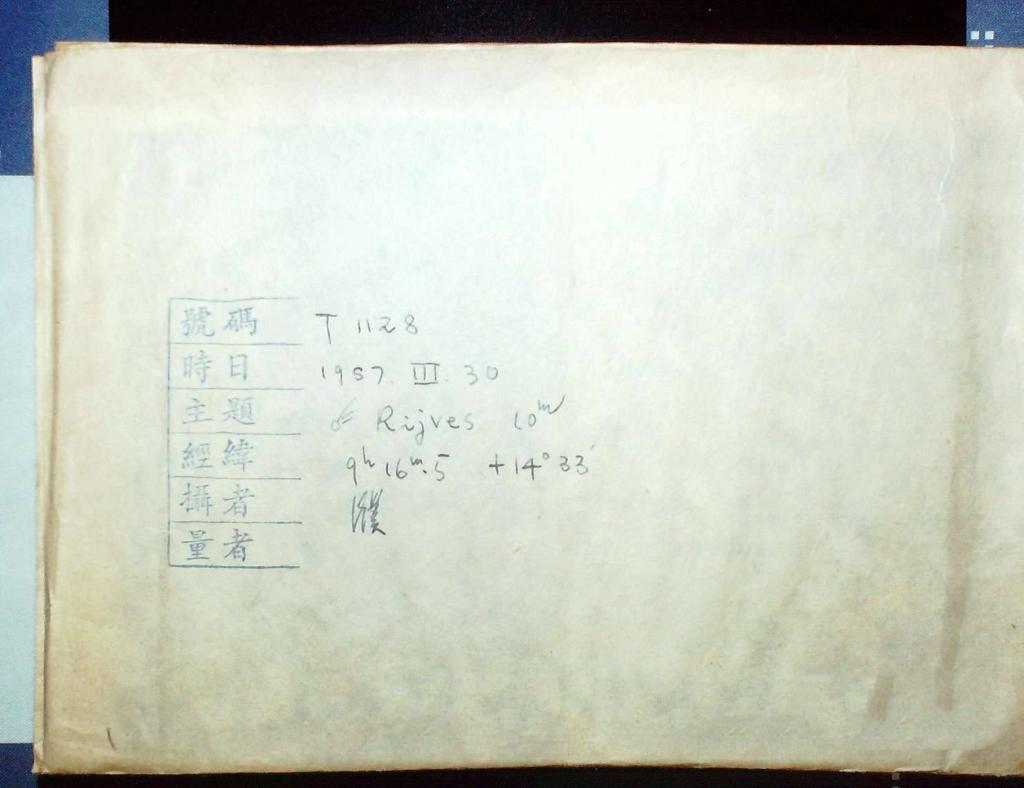 號碼 T 1128
時日 1957. III. 30
主題 Rijves 10ᵐ
經緯 9ʰ 16ᵐ.5 +14° 33'
攝者
量者